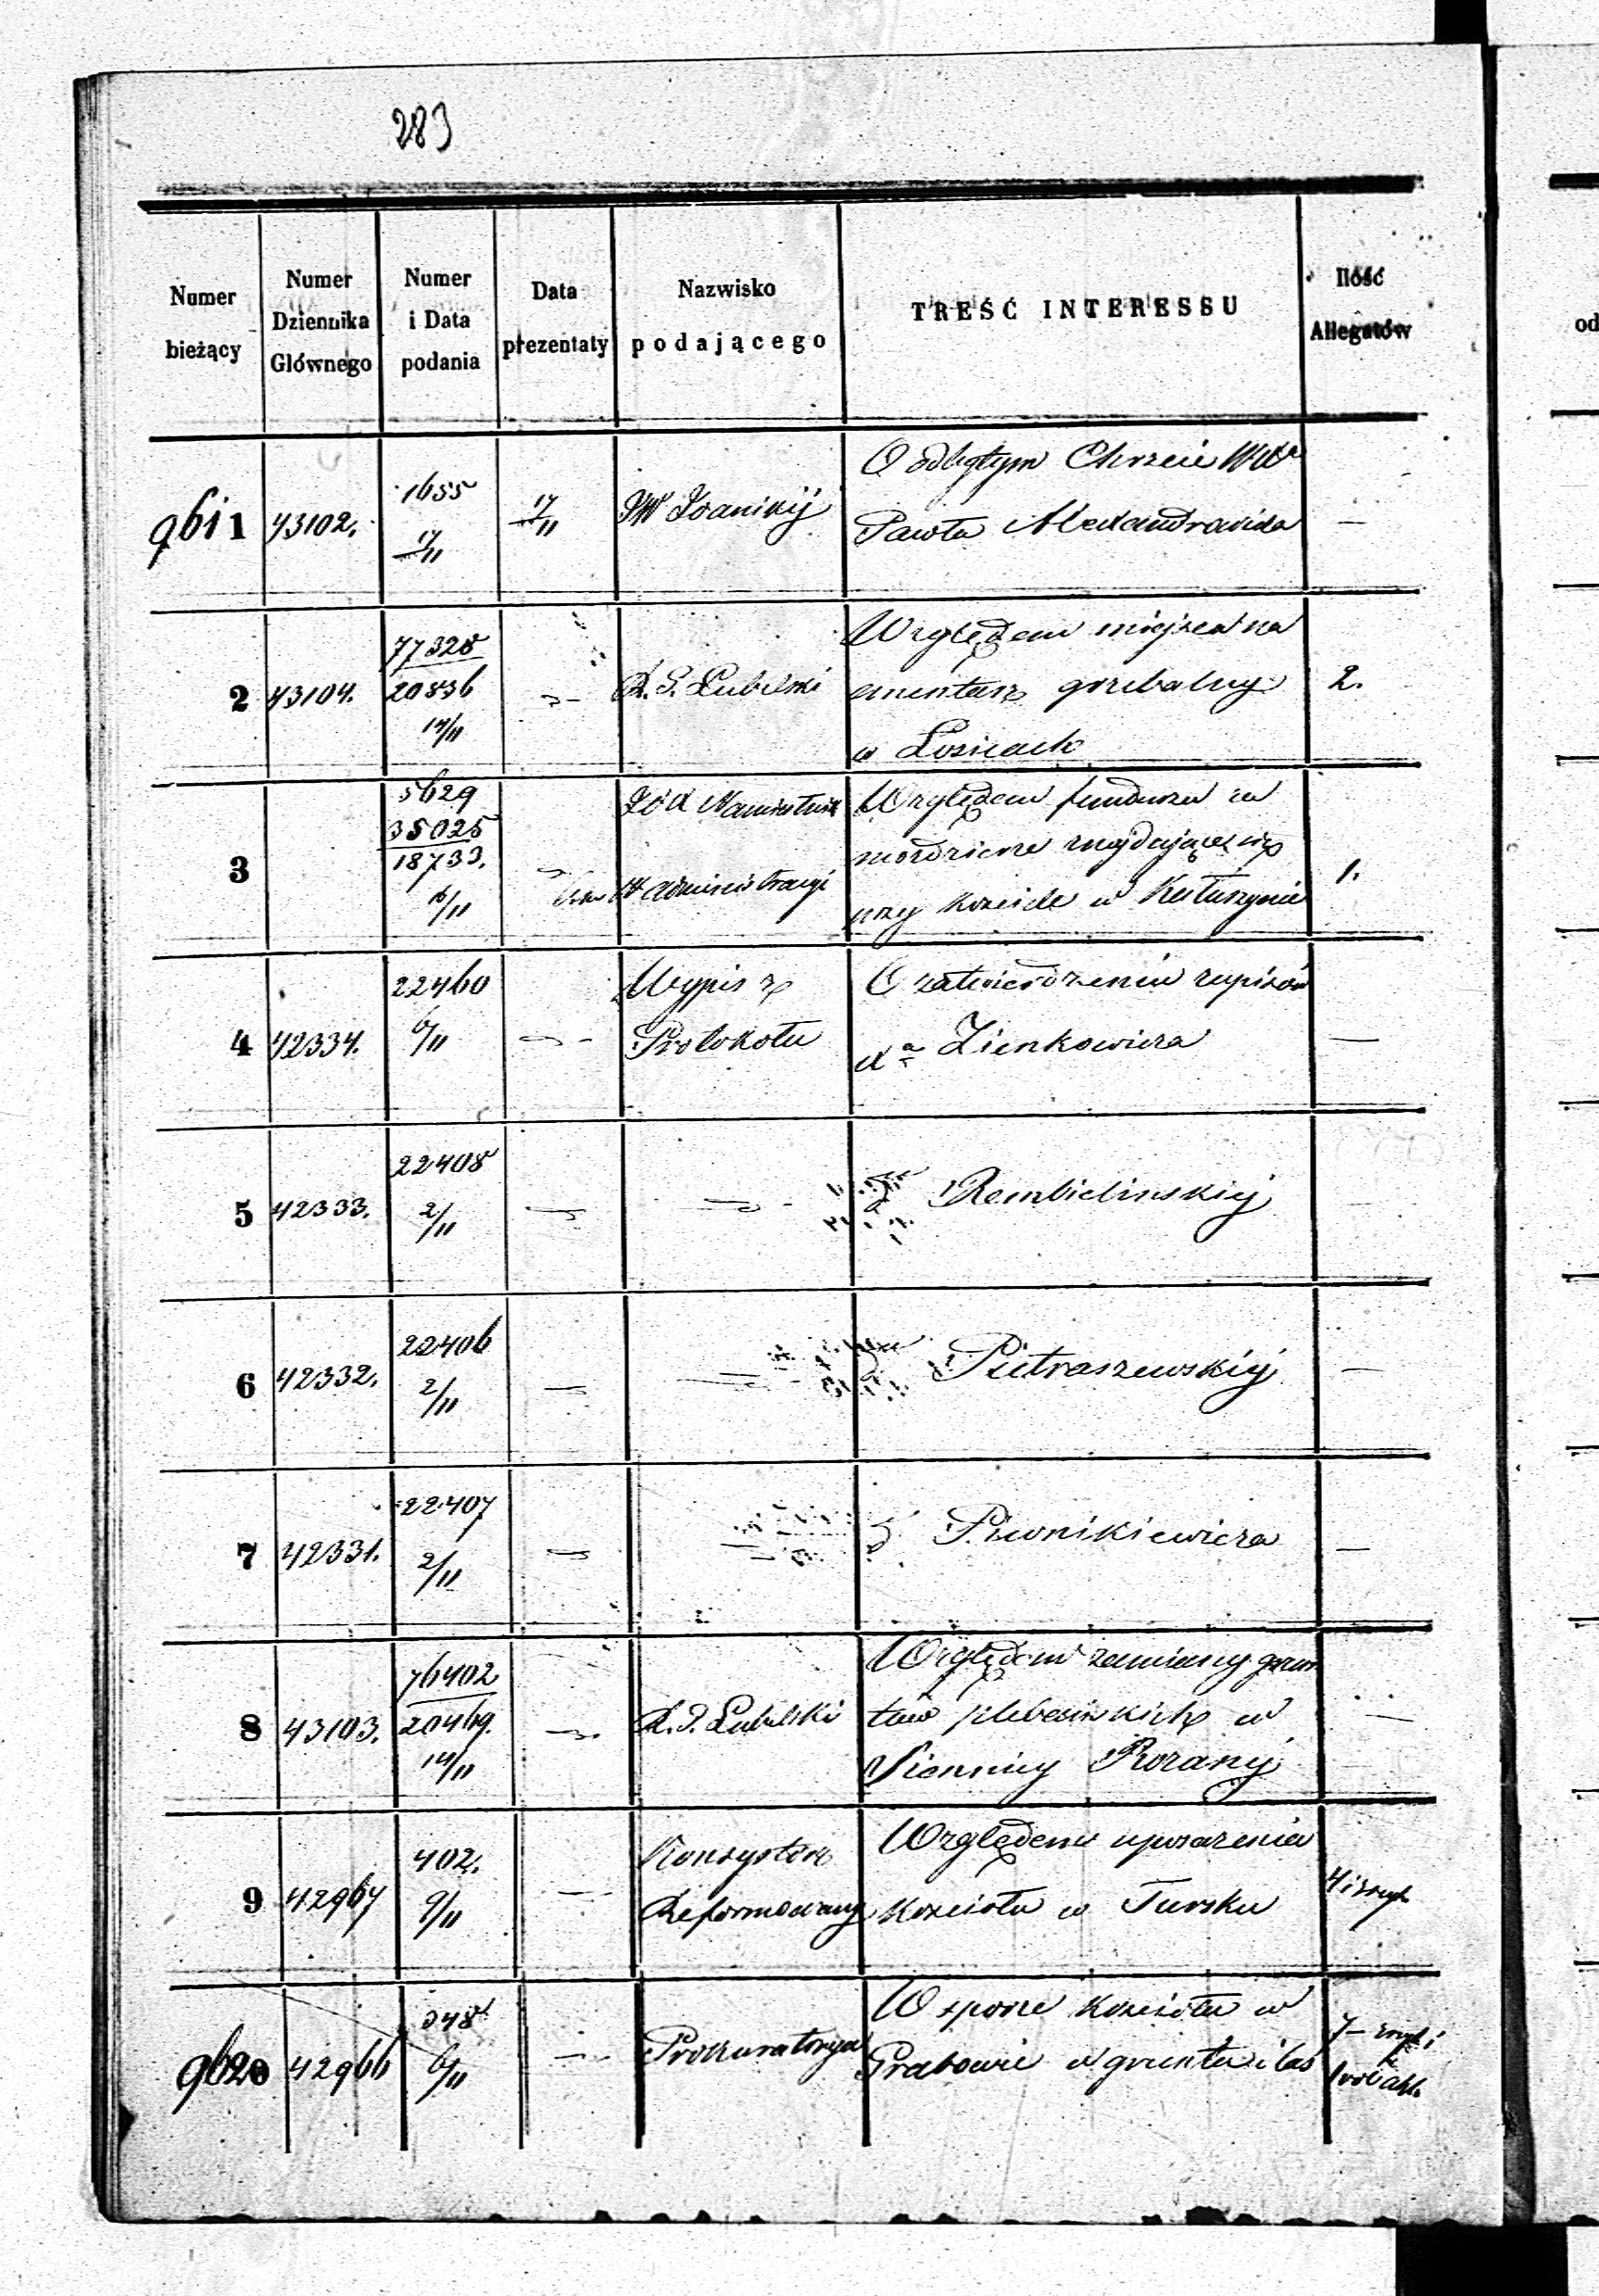 283
Numer bieżący
Numer Dziennika Głównego
Numer i Data podania
Data prezentaty
Nazwisko podającego
TREŚĆ INTERESSU
Ilość Allegatów
9611 43102. 1655 17/11 17/11 JW Joanikij
O odbytym Chrzcie
Pawła Alexandrowicza —
2 43104. 77328 20836 14/11 R. G. Lubelski
Względem miejsca na
cmentarz grzebalny
w Łosicach 2.
3 5629 35025 18733. 16/11
Względem funduszu
znajdującej się
przy kościele w 1.
4 42334. 22460 6/11 Wypis z
Protokołu
O zatwierdzeniu zapisów
Zienkowicza —
5 42333. 22408 2/11
Rembielinskiej
6 42332. 22406 2/11
Pietraszewskiej —
7 42331. 22407 2/11
Piwnikiewicza —
8 43103. 76402 20469. 14/11 R. G. Lubelski
Względem zamiany grun
tów plebańskich w
Siennicy Rozanej —
9 42967 402. 9/11 Konsystorz
Reformowany
Względem uposażenia
Kościoła w Tursku
9620 42966 348 6/11 Prokuratorya
W sporze Kościoła w
Grabowie o grunta i las